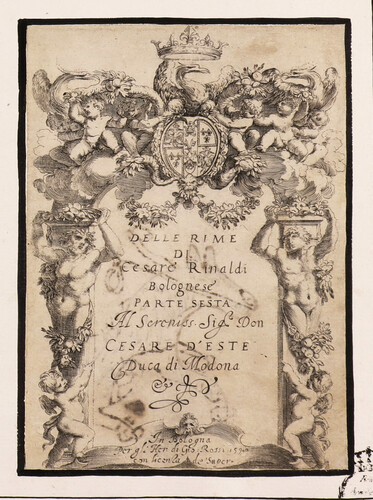 DELLE RIME
DI
Cesare Rinaldi
Bolognese
PARTE SESTA
Al Sereniss. Sigr. Don
CESARE D'ESTE
Duca di Modona
In Bologna
Per gli Her. di Gio. Rossi 159
con licenza de Super.